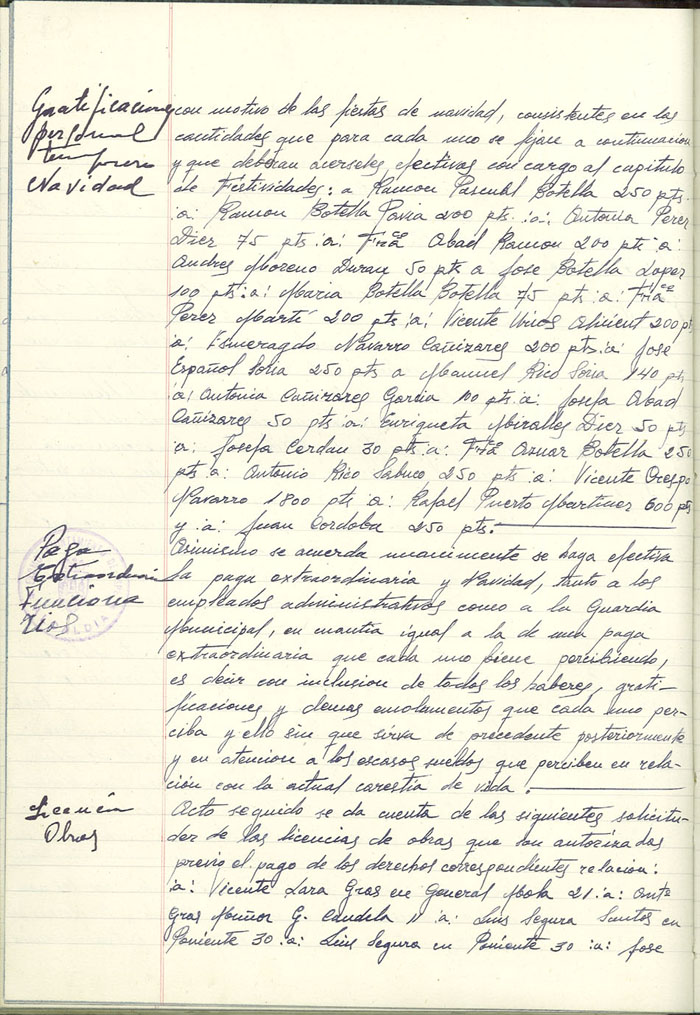 Gratificacion
personal
temporero
Navidad
con motivo de las fiestas de navidad, consistentes en las
cantidades que para cada uno se fijan a continuacion
y que deberan serseles efectivas con cargo al capitulo
de Festividades: a Ramon Pascual Botella 250 pts.
:a: Ramon Botella Pavia 200 pts :a: Antonia Perez
Diez 75 pts :a: Frco Abad Ramon 200 pts :a:
Andres Moreno Duran 50 pts a Jose Botella Lopez
100 pts :a: Maria Botella Botella 75 pts :a: Frco
Perez Marti 200 pts :a: Vicente Miñent 200 pts
:a: Esmeragdo Navarro Cañizares 200 pts :a: Jose
Español Soria 250 pts a Manuel Rico Soria 140 pts
:a: Antonia Cañizares Garcia 100 pts :a: Josefa Abad
Cañizares 50 pts :a: Enriqueta Miralles Diez 50 pts
:a: Josefa Cerdan 30 pts :a: Frco Aznar Botella 250
pts :a: Antonio Rico Sabuco 250 pts :a: Vicente Crespo
Navarro 1800 pts :a: Rafael Puerto Martinez 600 pts
y :a: Juan Cordoba 250 pts.
Paga
Extraordinaria
Funciona
rios
Asimismo se acuerda unanimente se haga efectiva
la paga extraordinaria y Navidad, tanto a los
empleados administrativos como a la Guardia
Municipal, en cuantia igual a la de una paga
extraordinaria que cada uno viene percibiendo,
es decir con inclusion de todos los haberes, grati-
ficaciones y demas emolamentos que cada uno per-
ciba y ello sin que sirva de precedente posteriormente
y en atencion a los escasos sueldos que perciben en rela-
ción con la actual carestia de vida.
Licencia
Obras
Acto seguido se da cuenta de las siguientes solicitu-
des de las licencias de obras que son autorizadas
previo el pago de los derechos correspondientes relacion:
:a: Vicente Lara Gras en General Mola 21 :a: Ante
Gras Muñoz G. Candela 11 :a: Luis Segura Santos en
Poniente 30 :a: Luis Segura en Poniente 30 :a: Jose